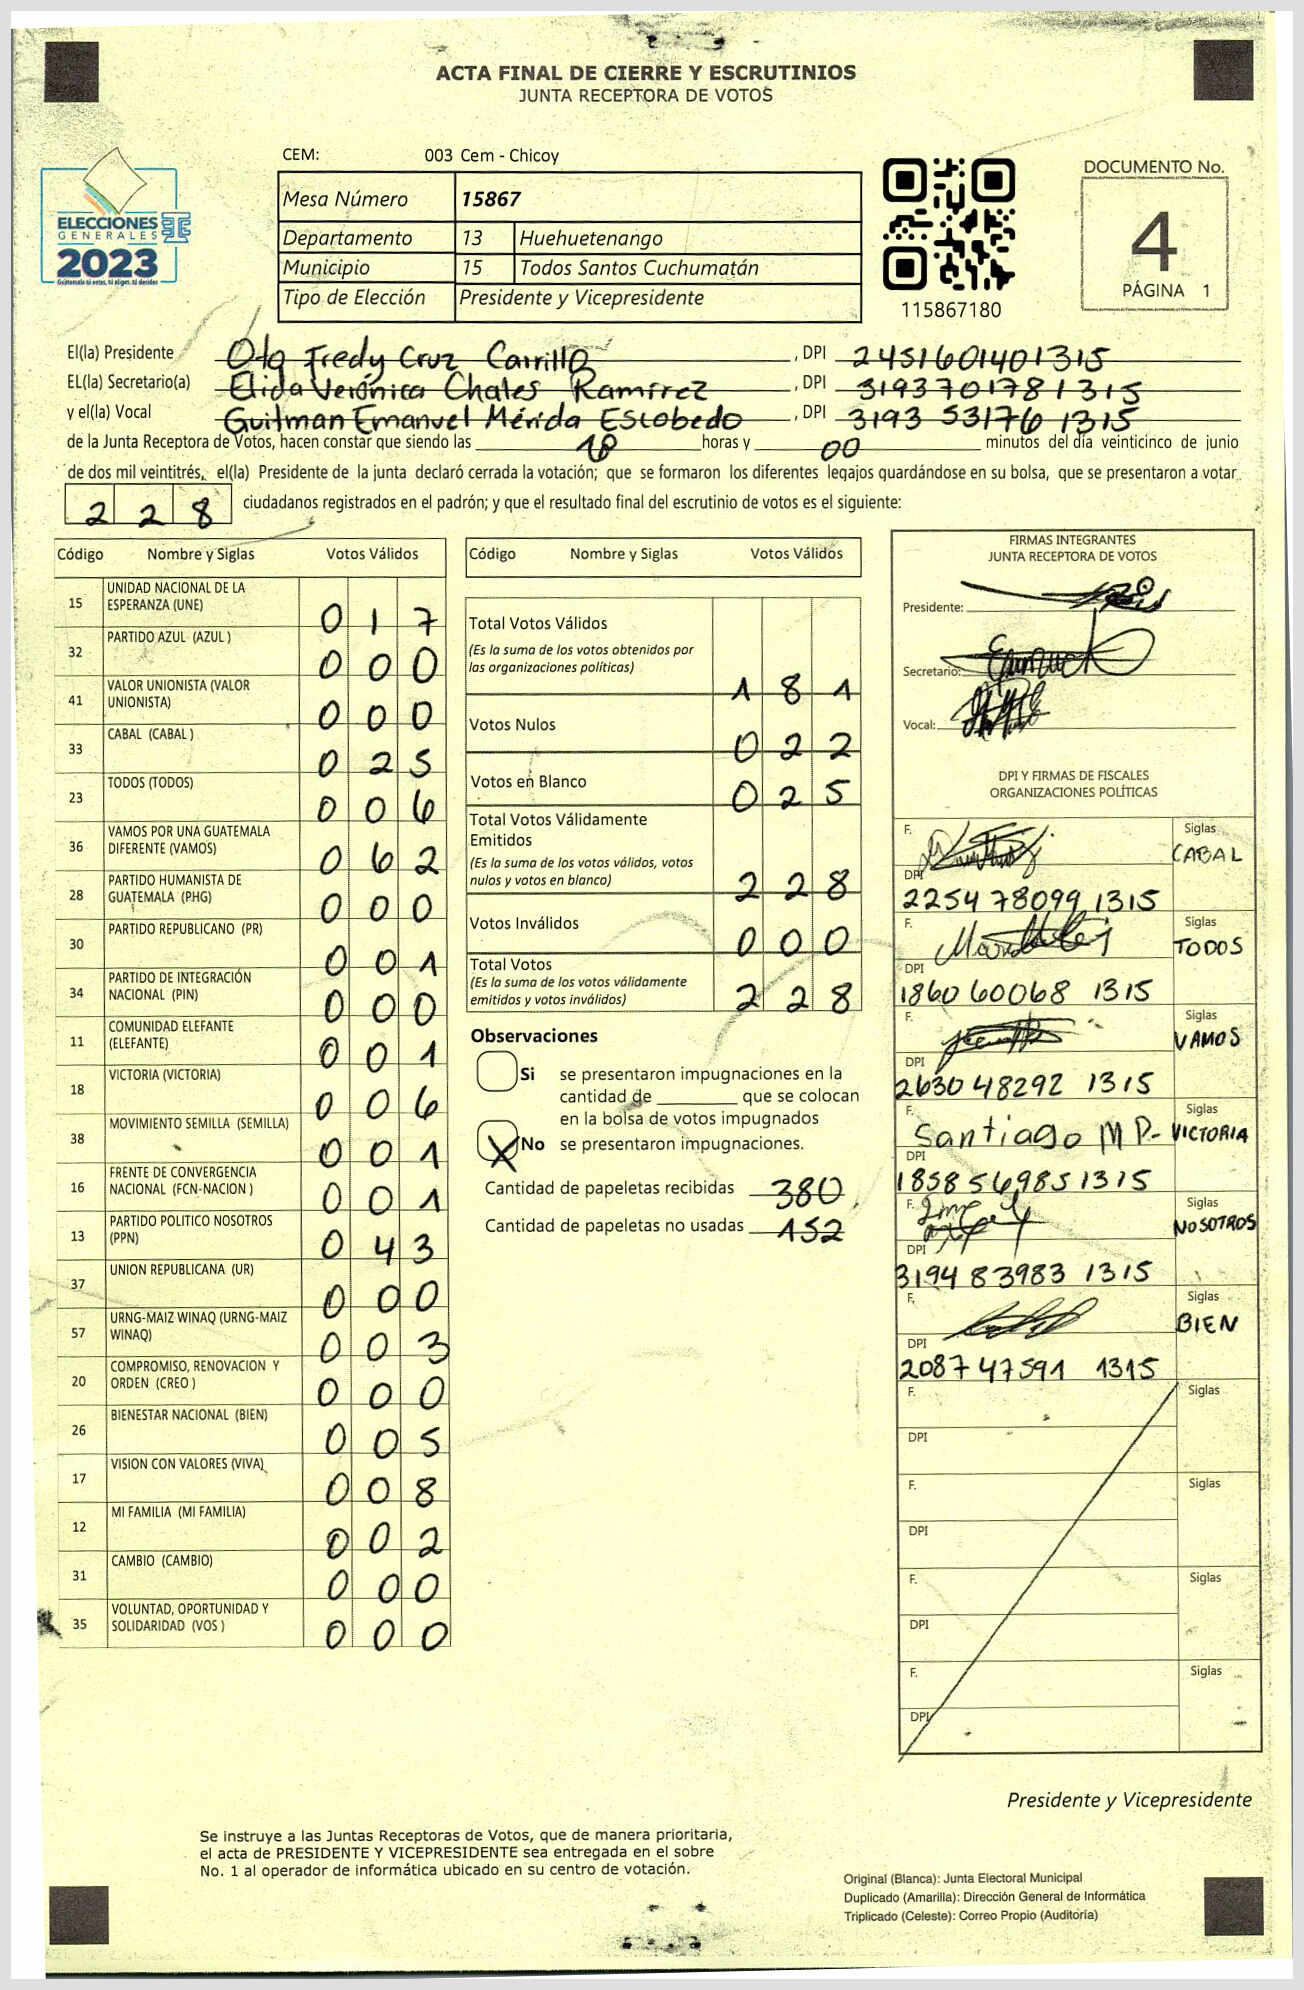 ACTA FINAL DE CIERRE Y ESCRUTINIOS
JUNTA RECEPTORA DE VOTOS
CEM: 003 Cem - Chicoy
Mesa Número 15867
Departamento 13 Huehuetenango
Municipio 15 Todos Santos Cuchumatán
Tipo de Elección Presidente y Vicepresidente
ELECCIONES
GENERALES
2023
Guatemala tú votas, tú eliges, tú decides
115867180
DOCUMENTO No.
4
PÁGINA 1
El(la) Presidente Fredy Cruz Carrillo, DPI 2451601401315
EL(la) Secretario(a) Elida Verónica Chales Ramírez, DPI 3193701781315
y el(la) Vocal Guilman Emanuel Mérida Escobedo, DPI 3193 53176 1315
de la Junta Receptora de Votos, hacen constar que siendo las 18 horas y 00 minutos del día veinticinco de junio
de dos mil veintitrés, el(la) Presidente de la junta declaró cerrada la votación; que se formaron los diferentes legajos quardándose en su bolsa, que se presentaron a votar
228 ciudadanos registrados en el padrón; y que el resultado final del escrutinio de votos es el siguiente:
Código Nombre y Siglas Votos Válidos
15 UNIDAD NACIONAL DE LA ESPERANZA (UNE) 0 1 7
32 PARTIDO AZUL (AZUL ) 0 0 0
41 VALOR UNIONISTA (VALOR UNIONISTA) 0 0 0
33 CABAL (CABAL ) 0 2 5
23 TODOS (TODOS) 0 0 6
36 VAMOS POR UNA GUATEMALA DIFERENTE (VAMOS) 0 6 2
28 PARTIDO HUMANISTA DE GUATEMALA (PHG) 0 0 0
30 PARTIDO REPUBLICANO (PR) 0 0 1
34 PARTIDO DE INTEGRACIÓN NACIONAL (PIN) 0 0 0
11 COMUNIDAD ELEFANTE (ELEFANTE) 0 0 1
18 VICTORIA (VICTORIA) 0 0 6
38 MOVIMIENTO SEMILLA (SEMILLA) 0 0 1
16 FRENTE DE CONVERGENCIA NACIONAL (FCN-NACION ) 0 0 1
13 PARTIDO POLITICO NOSOTROS (PPN) 0 4 3
37 UNION REPUBLICANA (UR) 0 0 0
57 URNG-MAIZ WINAQ (URNG-MAIZ WINAQ) 0 0 3
20 COMPROMISO, RENOVACION Y ORDEN (CREO ) 0 0 0
26 BIENESTAR NACIONAL (BIEN) 0 0 5
17 VISION CON VALORES (VIVA) 0 0 8
12 MI FAMILIA (MI FAMILIA) 0 0 2
31 CAMBIO (CAMBIO) 0 0 0
35 VOLUNTAD, OPORTUNIDAD Y SOLIDARIDAD (VOS ) 0 0 0
Código Nombre y Siglas Votos Válidos
Total Votos Válidos
(Es la suma de los votos obtenidos por
las organizaciones políticas) 1 8 1
Votos Nulos 0 2 2
Votos en Blanco 0 2 5
Total Votos Válidamente
Emitidos
(Es la suma de los votos válidos, votos
nulos y votos en blanco) 2 2 8
Votos Inválidos 0 0 0
Total Votos
(Es la suma de los votos válidamente
emitidos y votos inválidos) 2 2 8
Observaciones
Si se presentaron impugnaciones en la
cantidad de ________ que se colocan
en la bolsa de votos impugnados
X No se presentaron impugnaciones.
Cantidad de papeletas recibidas 380
Cantidad de papeletas no usadas 152
FIRMAS INTEGRANTES
JUNTA RECEPTORA DE VOTOS
Presidente:
Secretario:
Vocal:
DPI Y FIRMAS DE FISCALES
ORGANIZACIONES POLÍTICAS
F. Siglas
CABAL
DPI
2254 78099 1315
F. Siglas
TODOS
DPI
1860 60068 1315
F. Siglas
VAMOS
DPI
2630 48292 1315
F. Siglas
Santiago M P- VICTORIA
DPI
1858 56985 1315
F. Siglas
NOSOTROS
DPI
3194 83983 1315
F. Siglas
BIEN
DPI
2087 47591 1315
F. Siglas
DPI
F. Siglas
DPI
F. Siglas
DPI
F. Siglas
DPI
Presidente y Vicepresidente
Se instruye a las Juntas Receptoras de Votos, que de manera prioritaria,
el acta de PRESIDENTE Y VICEPRESIDENTE sea entregada en el sobre
No. 1 al operador de informática ubicado en su centro de votación.
Original (Blanca): Junta Electoral Municipal
Duplicado (Amarilla): Dirección General de Informática
Triplicado (Celeste): Correo Propio (Auditoría)